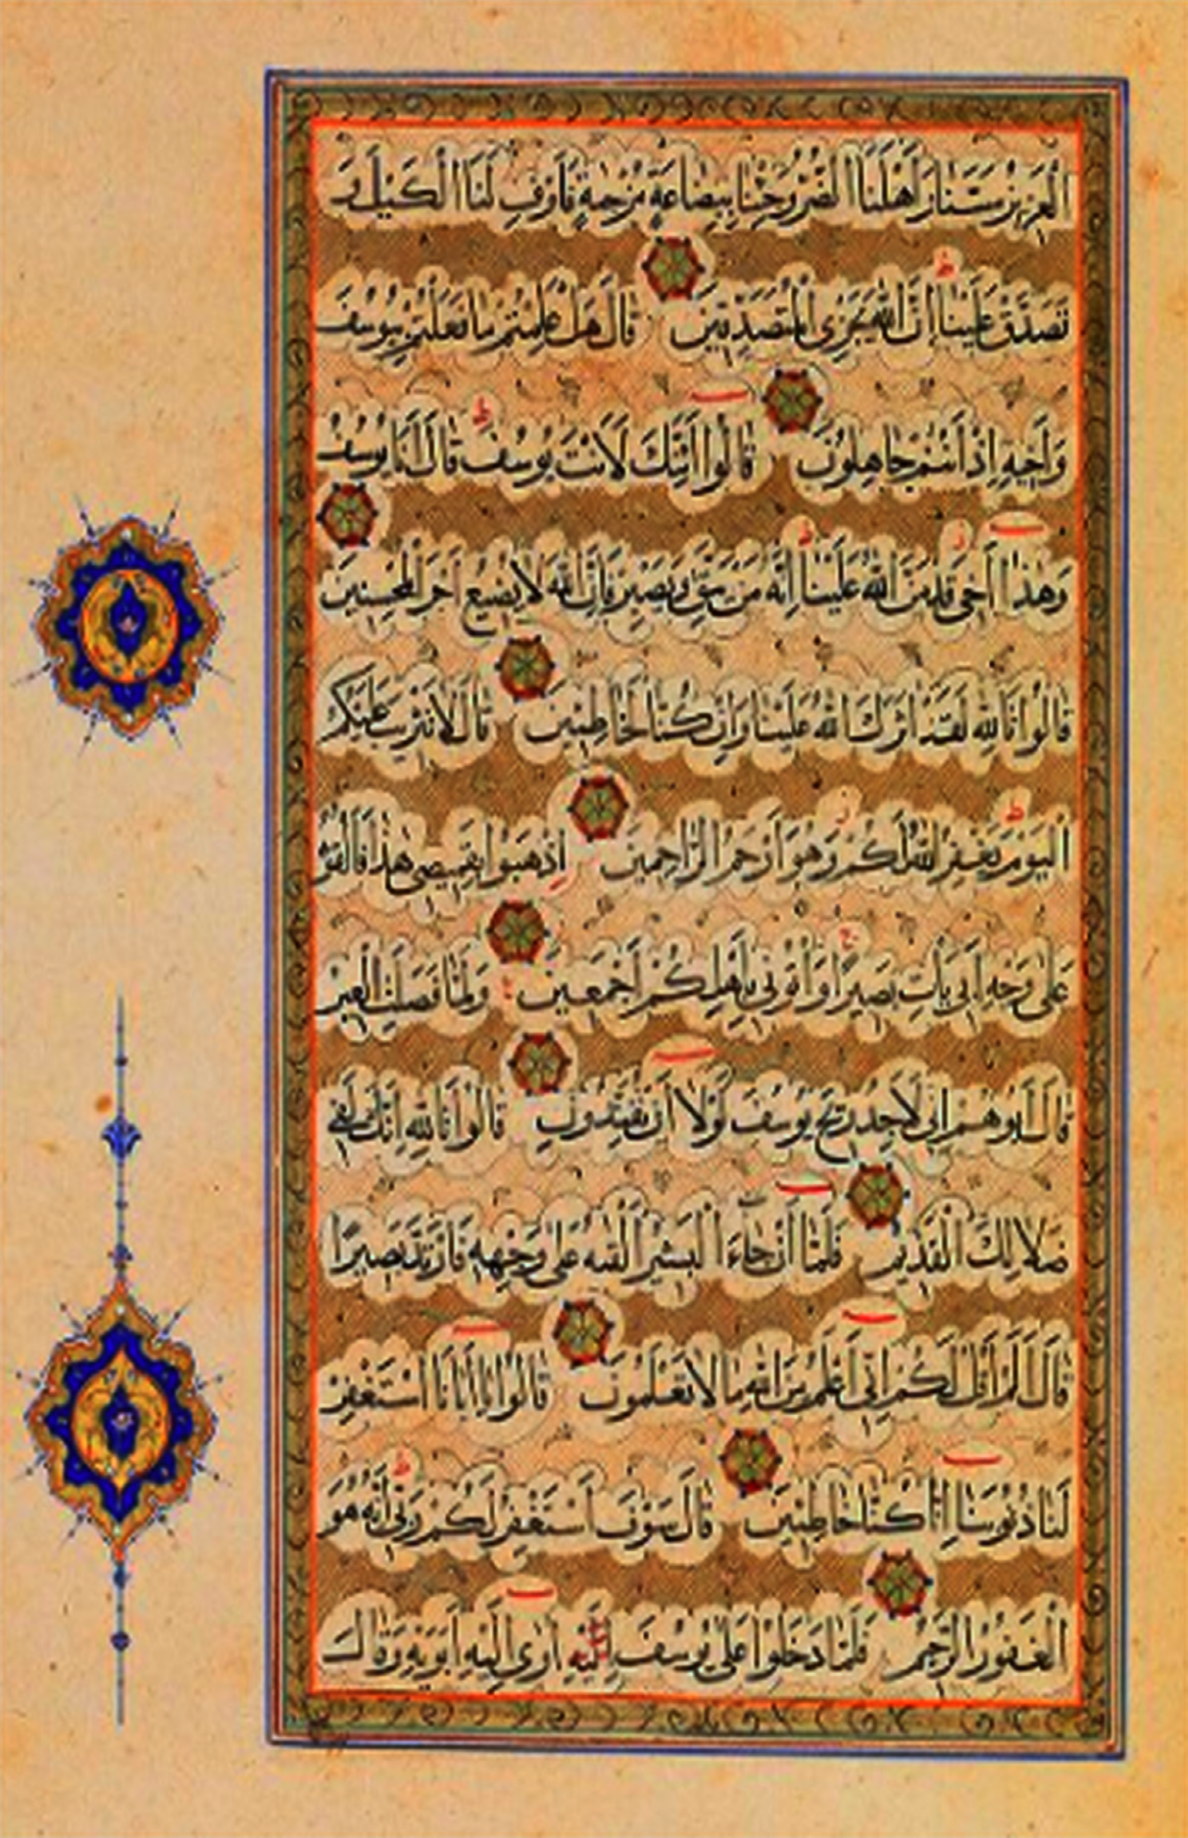 العزيز مسنا واهلنا الضر وجئنا ببضاعة مزجية فاوف لنا الكيل و
تصدق علينا ان الله يجزى المتصدقين قال هل علمتم ما فعلتم بيوسف
واخيه اذ انتم جاهلون قالوا ائنك لانت يوسف قال انا يوسف
وهذا اخى قد من الله علينا انه من يتق ويصبر فان الله لا يضيع اجر المحسنين
قالوا تالله لقد اثرك الله علينا وان كنا لخاطئين قال لا تثريب عليكم
اليوم يغفر الله لكم وهو ارحم الراحمين اذهبوا بقميصى هذا فالقوه
على وجه ابى يات بصيرا واتونى باهلكم اجمعين ولما فصلت العير
قال ابوهم انى لاجد ريح يوسف لولا ان تفندون قالوا تالله انك لفى
ضلالك القديم فلما ان جاء البشير القيه على وجهه فارتد بصيرا
قال الم اقل لكم انى اعلم من الله ما لا تعلمون قالوا يا ابانا استغفر
لنا ذنوبنا انا كنا خاطئين قال سوف استغفر لكم ربى انه هو
الغفور الرحيم فلما دخلوا على يوسف اوى اليه ابويه وقال